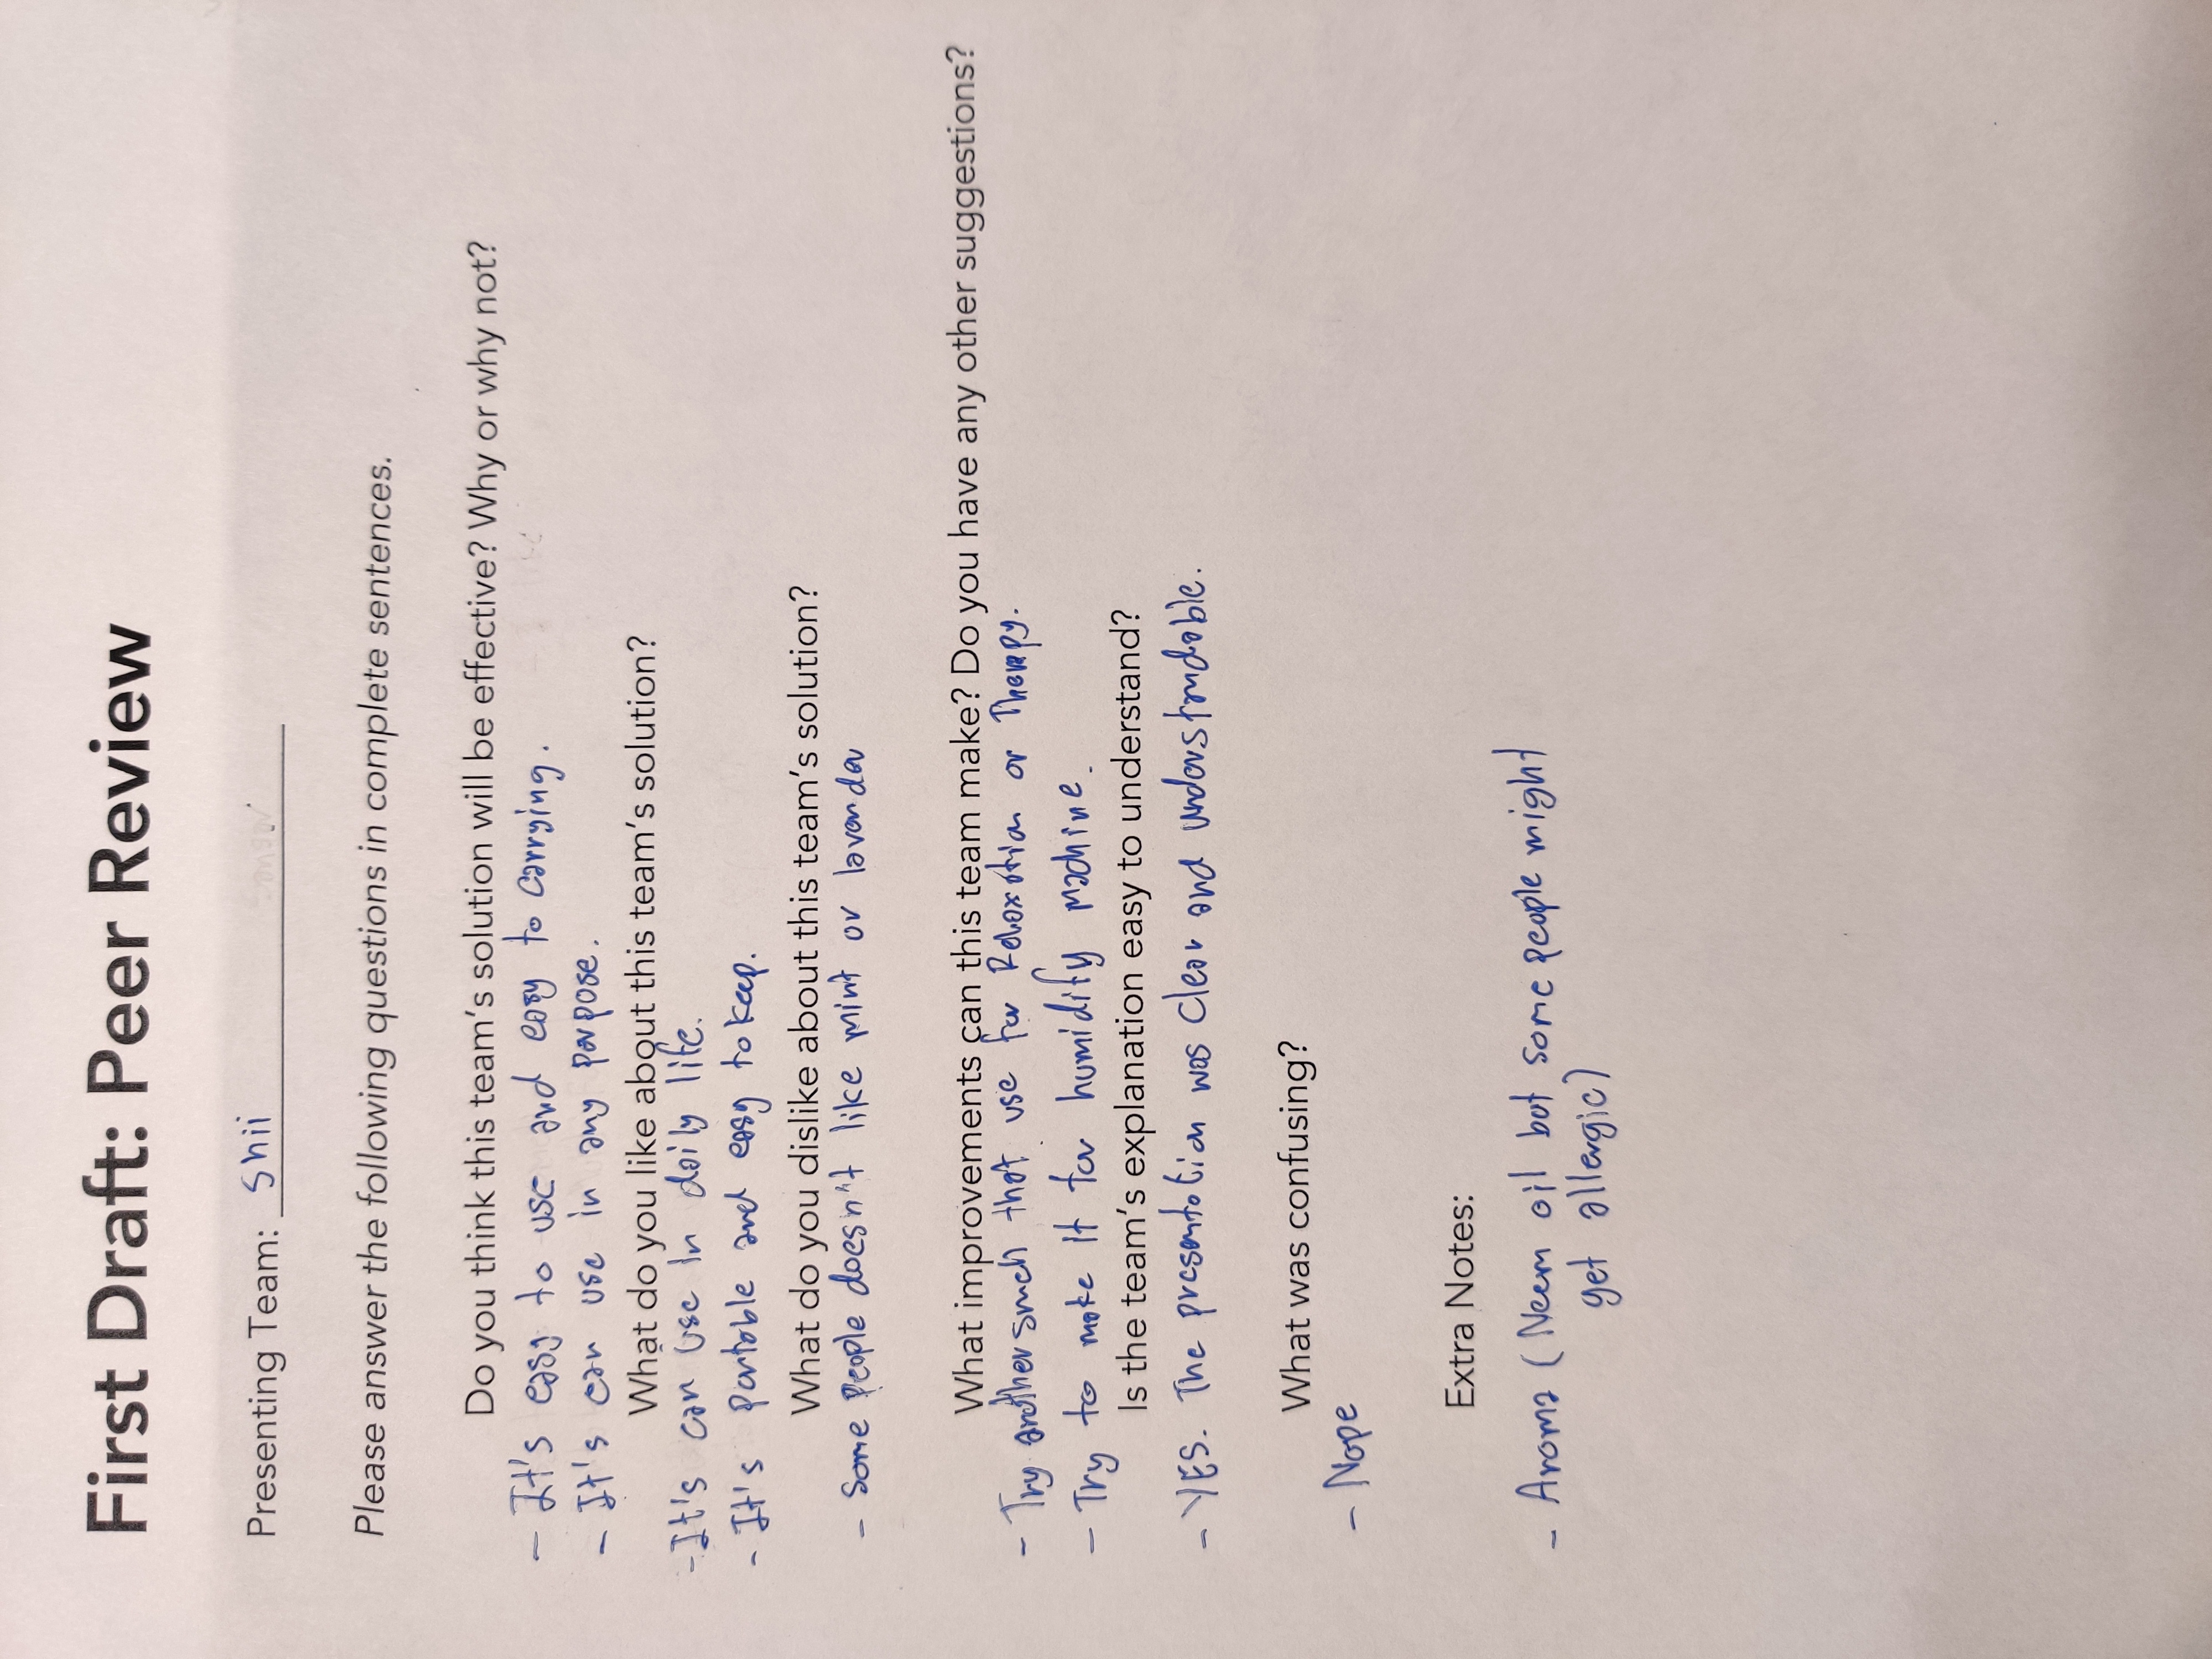 First Draft: Peer Review
Presenting Team: Shii
Please answer the following questions in complete sentences.
Do you think this team's solution will be effective? Why or why not?
- It's easy to use and easy to carrying.
- It's can use in any porpose.
What do you like about this team's solution?
- It's can use in daily life.
- It's portable and easy to keep.
What do you dislike about this team's solution?
- Some people doesn't like mint or lavender
What improvements can this team make? Do you have any other suggestions?
- Try another smell that use for Relaxation or Therapy.
- Try to make it for humidify machine.
Is the team's explanation easy to understand?
- YES. The presentation was clear and understandable.
What was confusing?
- Nope
Extra Notes:
- Aroma (Neem oil but some people might
get allergic)